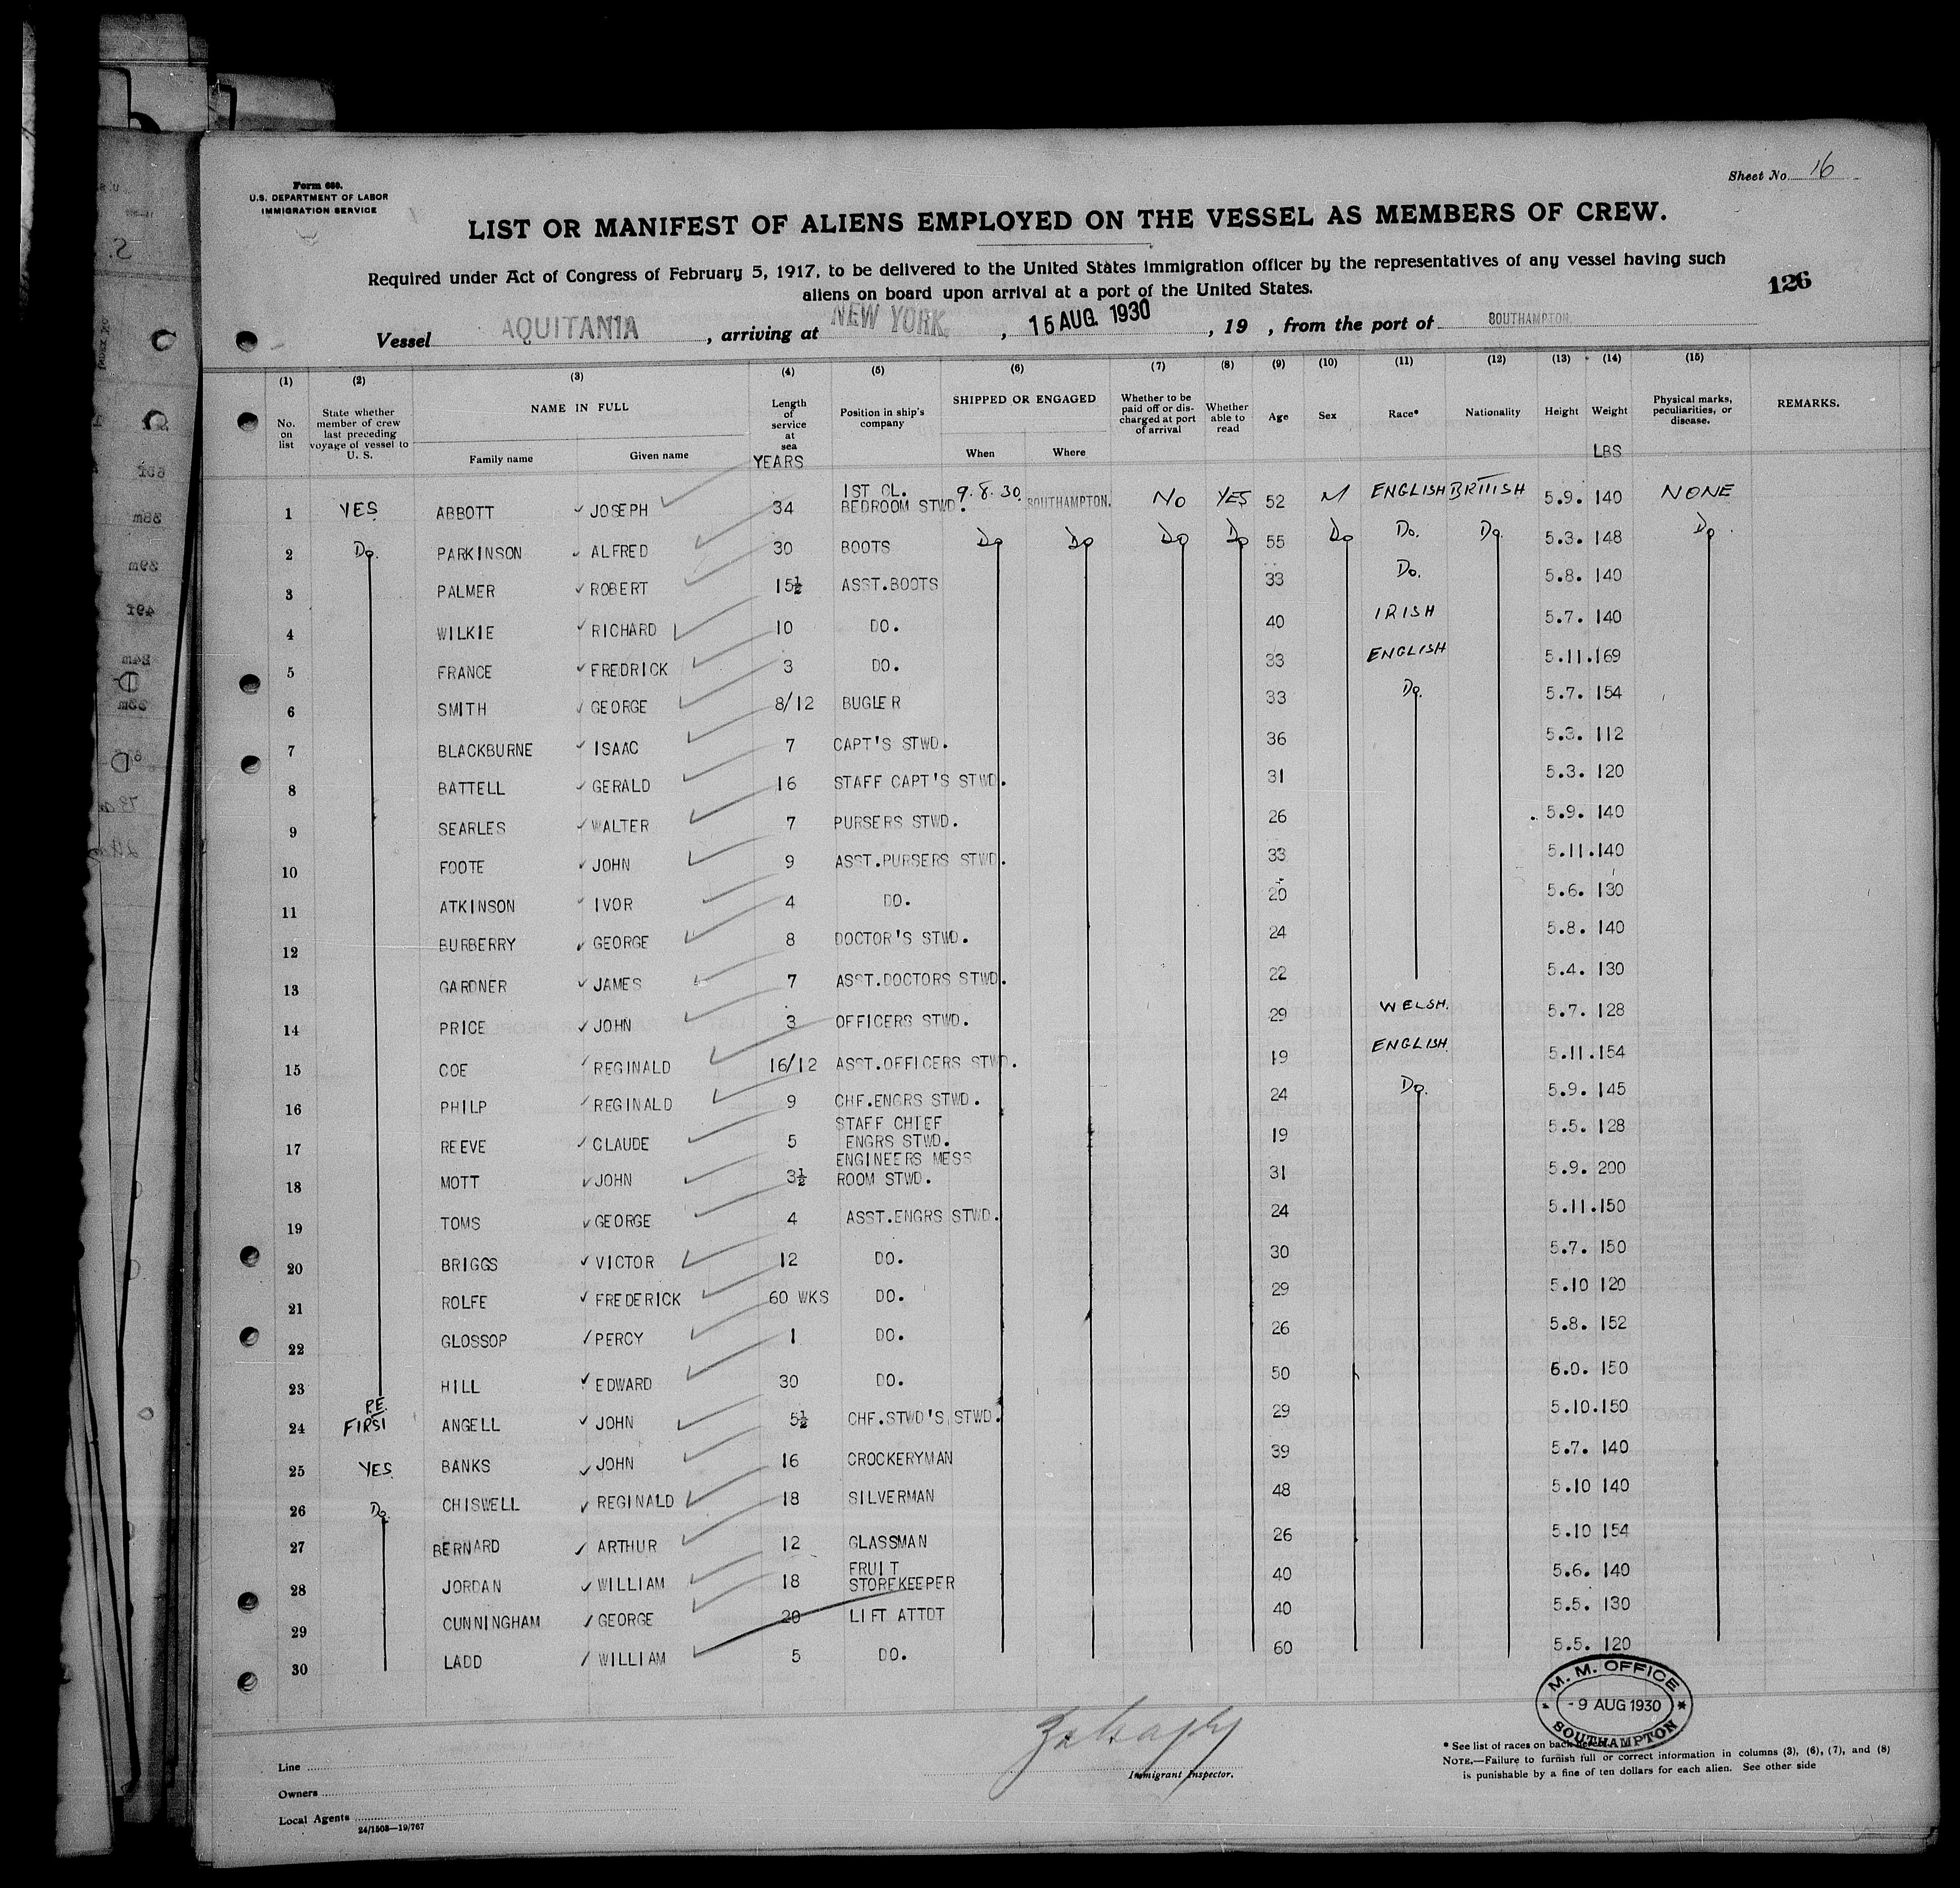 Form 680.
U.S. DEPARTMENT OF LABOR
IMMIGRATION SERVICE
Sheet No. 16
LIST OR MANIFEST OF ALIENS EMPLOYED ON THE VESSEL AS MEMBERS OF CREW.
Required under Act of Congress of February 5, 1917, to be delivered to the United States immigration officer by the representatives of any vessel having such
aliens on board upon arrival at a port of the United States.
126
Vessel AQUITANIA, arriving at NEW YORK, 15 AUG. 1930, 19 , from the port of SOUTHAMPTON.
(1) (2) (3) (4) (5) (6) (7) (8) (9) (10) (11) (12) (13) (14) (15)
No. on list State whether member of crew last preceding voyage of vessel to U. S. NAME IN FULL Length of service at sea Position in ship's company SHIPPED OR ENGAGED Whether to be paid off or discharged at port of arrival Whether able to read Age Sex Race* Nationality Height Weight Physical marks, peculiarities, or disease. REMARKS.
Family name Given name YEARS When Where LBS
1 YES ABBOTT JOSEPH 34 1ST CL. BEDROOM STWD. 9.8.30. SOUTHAMPTON. No YES 52 M ENGLISH BRITISH 5.9. 140 NONE
2 Do. PARKINSON ALFRED 30 BOOTS Do Do Do Do 55 Do Do. Do. 5.3. 148 Do.
3 PALMER ROBERT 15½ ASST.BOOTS 33 Do. 5.8. 140
4 WILKIE RICHARD 10 DO. 40 IRISH 5.7. 140
5 FRANCE FREDRICK 3 DO. 33 ENGLISH 5.11.169
6 SMITH GEORGE 8/12 BUGLER 33 Do. 5.7. 154
7 BLACKBURNE ISAAC 7 CAPT'S STWD. 36 5.3. 112
8 BATTELL GERALD 16 STAFF CAPT'S STWD. 31 5.3. 120
9 SEARLES WALTER 7 PURSERS STWD. 26 5.9. 140
10 FOOTE JOHN 9 ASST.PURSERS STWD. 33 5.11.140
11 ATKINSON IVOR 4 DO. 20 5.6. 130
12 BURBERRY GEORGE 8 DOCTOR'S STWD. 24 5.8. 140
13 GARDNER JAMES 7 ASST.DOCTORS STWD. 22 5.4. 130
14 PRICE JOHN 3 OFFICERS STWD. 29 WELSH. 5.7. 128
15 COE REGINALD 16/12 ASST.OFFICERS STWD. 19 ENGLISH. 5.11.154
16 PHILP REGINALD 9 CHF.ENGRS STWD. 24 Do. 5.9. 145
17 REEVE CLAUDE 5 STAFF CHIEF ENGRS STWD. 19 5.5. 128
18 MOTT JOHN 3½ ENGINEERS MESS ROOM STWD. 31 5.9. 200
19 TOMS GEORGE 4 ASST.ENGRS STWD. 24 5.11.150
20 BRIGGS VICTOR 12 DO. 30 5.7. 150
21 ROLFE FREDERICK 60 WKS DO. 29 5.10 120
22 GLOSSOP PERCY 1 DO. 26 5.8. 152
23 HILL EDWARD 30 DO. 50 6.0. 150
24 RE. FIRST ANGELL JOHN 5½ CHF.STWD'S STWD. 29 5.10.150
25 YES. BANKS JOHN 16 CROCKERYMAN 39 5.7. 140
26 Do. CHISWELL REGINALD 18 SILVERMAN 48 5.10 140
27 BERNARD ARTHUR 12 GLASSMAN 26 5.10 154
28 JORDAN WILLIAM 18 FRUIT STOREKEEPER 40 5.6. 140
29 CUNNINGHAM GEORGE 20 LIFT ATTDT 40 5.5. 130
30 LADD WILLIAM 5 DO. 60 5.5. 120
M. M. OFFICE
- 9 AUG 1930
SOUTHAMPTON
Line
Owners
Local Agents
24/1503—19/767
Immigrant Inspector.
* See list of races on back
NOTE.—Failure to furnish full or correct information in columns (3), (6), (7), and (8)
is punishable by a fine of ten dollars for each alien. See other side